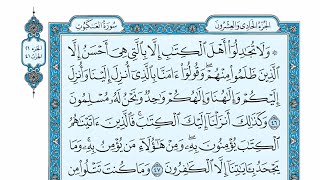 الجزء الحادي والعشرون
سورة العنكبوت
الجزء ٢١
وَلَا تُجَٰدِلُوٓا۟ أَهْلَ ٱلْكِتَٰبِ إِلَّا بِٱلَّتِى هِىَ أَحْسَنُ إِلَّا
ٱلَّذِينَ ظَلَمُوا۟ مِنْهُمْ وَقُولُوٓا۟ ءَامَنَّا بِٱلَّذِىٓ أُنزِلَ إِلَيْنَا وَأُنزِلَ
إِلَيْكُمْ وَإِلَٰهُنَا وَإِلَٰهُكُمْ وَٰحِدٌ وَنَحْنُ لَهُۥ مُسْلِمُونَ
٤٦ وَكَذَٰلِكَ أَنزَلْنَآ إِلَيْكَ ٱلْكِتَٰبَ فَٱلَّذِينَ ءَاتَيْنَٰهُمُ
ٱلْكِتَٰبَ يُؤْمِنُونَ بِهِۦ وَمِنْ هَٰٓؤُلَآءِ مَن يُؤْمِنُ بِهِۦ وَمَا
يَجْحَدُ بِـَٔايَٰتِنَآ إِلَّا ٱلْكَٰفِرُونَ ٤٧ وَمَا كُنتَ تَتْلُوا۟ مِن